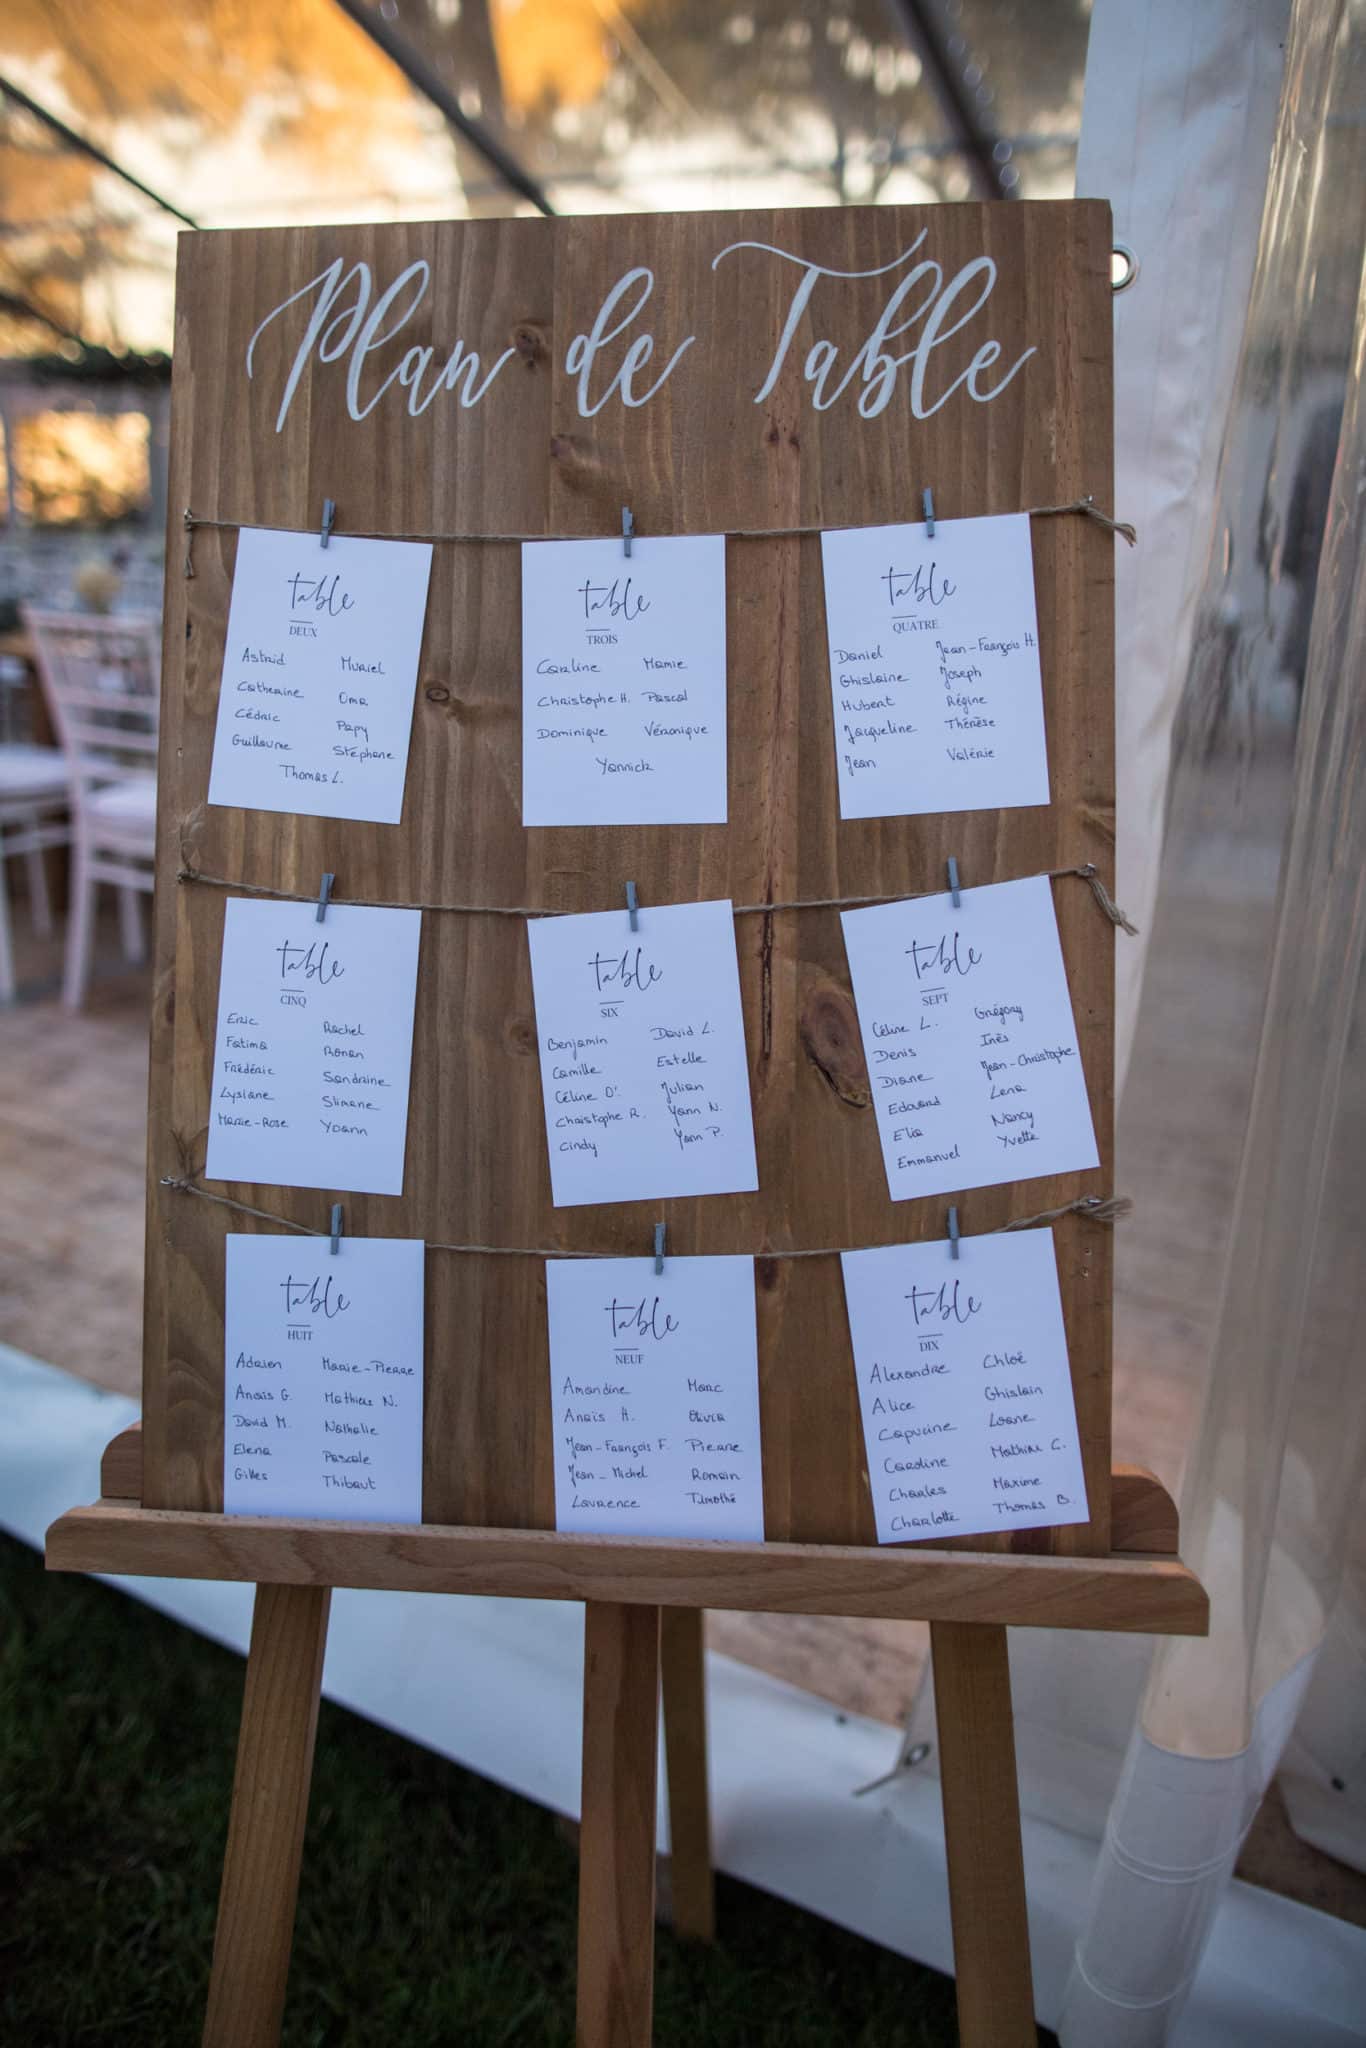 Plan de Table
table
DEUX
Astrid Muriel
Catherine Oma
Cédric Papy
Guillaume Stéphane
Thomas L.
table
TROIS
Caroline Mamie
Christophe H. Pascal
Dominique Véronique
Yannick
table
QUATRE
Daniel Jean-François H.
Ghislaine Joseph
Hubert Régine
Jacqueline Thérèse
Jean Valérie
table
CINQ
Eric Rachel
Fatima Ronan
Frédéric Sandrine
Lysiane Slimane
Marie-Rose Yoann
table
SIX
Benjamin David L.
Camille Estelle
Céline O'. Julian
Christophe R. Yann N.
Cindy Yann P.
table
SEPT
Céline L. Grégory
Denis Inès
Diane Jean-Christophe
Edouard Lena
Elia Nancy
Emmanuel Yvette
table
HUIT
Adrien Marie-Pierre
Anaïs G. Mathieu N.
David M. Nathalie
Elena Pascale
Gilles Thibaut
table
NEUF
Amandine Marc
Anaïs H. Olivia
Jean-François F. Pierre
Jean-Michel Romain
Laurence Timothé
table
DIX
Alexandre Chloé
Alice Ghislain
Capucine Loane
Caroline Mathieu C.
Charles Maxime
Charlotte Thomas B.